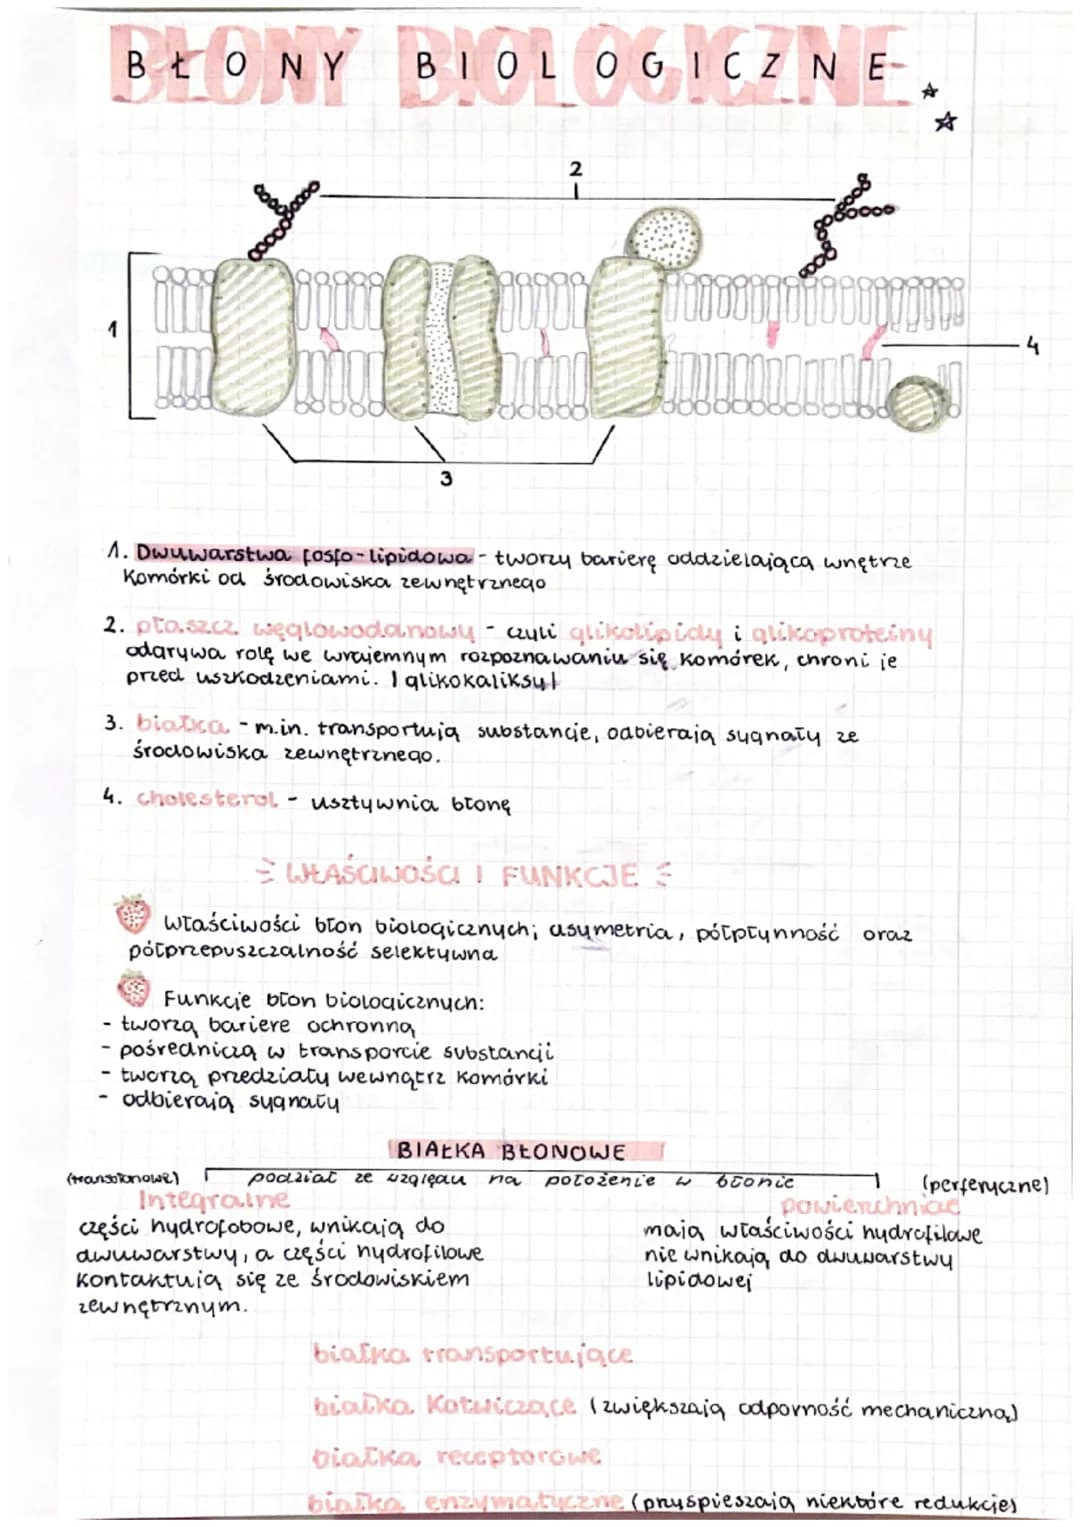 BŁONY BIOLOGICZNE
2
1
4
3
1. Dwuwarstwa fosfo-lipidowa - tworzy barierę oddzielającą wnętrze
komórki od środowiska zewnętrznego
2. płaszcz węglowodanowy - czyli glikolipidy i glikoproteiny
odgrywa rolę we wzajemnym rozpoznawaniu się komórek, chroni je
przed uszkodzeniami. | glikokaliksy |
3. białka - m.in. transportują substancje, odbierają sygnały ze
środowiska zewnętrznego.
4. cholesterol - usztywnia błonę
WŁAŚCIWOŚCI I FUNKCJE
właściwości błon biologicznych; asymetria, półpłynność oraz
półprzepuszczalność selektywna
Funkcje błon biologicznych:
- tworzą bariere ochronną
- pośredniczą w transporcie substancji
- tworzą przedziały wewnątrz komórki
- odbierają sygnały
BIAŁKA BŁONOWE
(transbłonowe) podział ze względu na położenie w błonie (peryferyczne)
Integralne powierzchniowe
części hydrofobowe, wnikają do
dwuwarstwy, a części hydrofilowe
kontaktują się ze środowiskiem
zewnętrznym.
mają właściwości hydrofilowe
nie wnikają do dwuwarstwy
lipidowej
białka transportujące
białka kotwiczące (zwiększają odporność mechaniczną)
białka receptorowe
białka enzymatyczne (pryśpieszają niektóre redukcje)